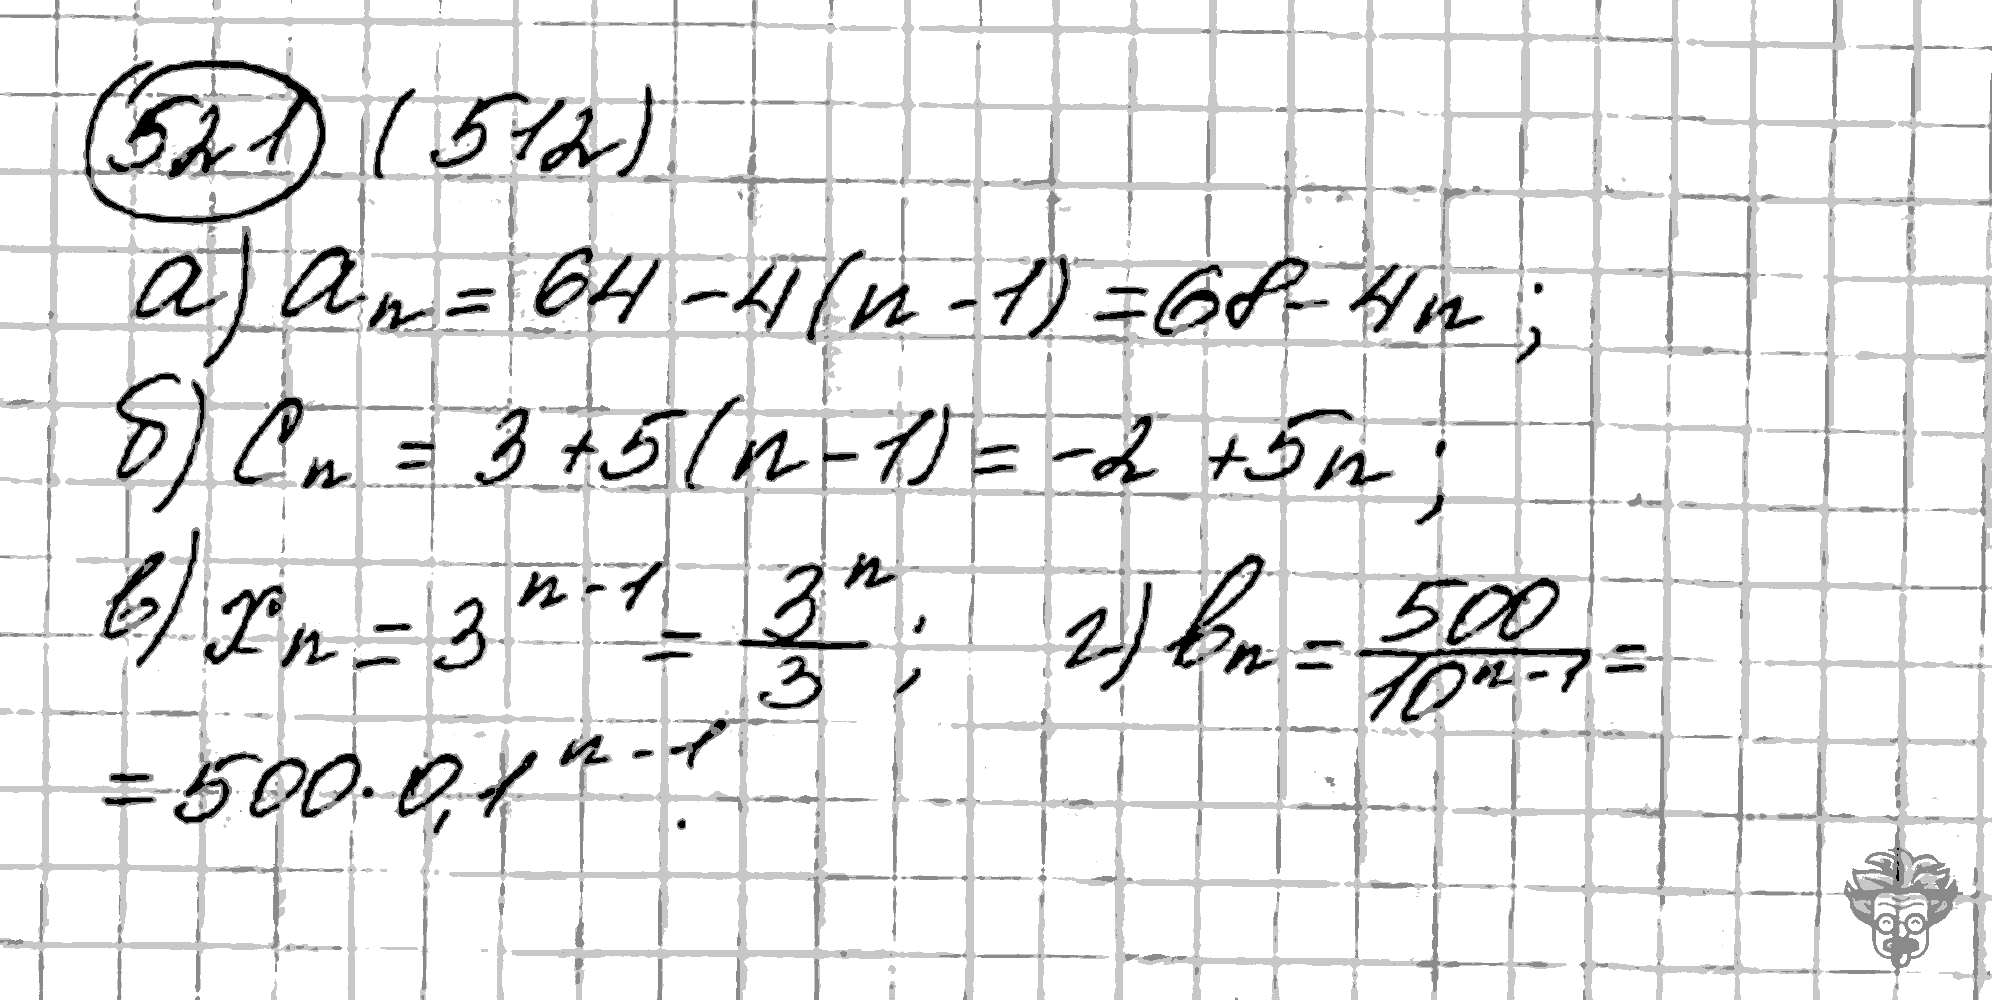 521 (512)
а) aₙ = 64 - 4(n - 1) = 68 - 4n ;
б) cₙ = 3 + 5(n - 1) = -2 + 5n ;
в) xₙ = 3ⁿ⁻¹ = 3ⁿ/3 ; г) bₙ = 500/10ⁿ⁻¹ =
= 500 · 0,1ⁿ⁻¹ .